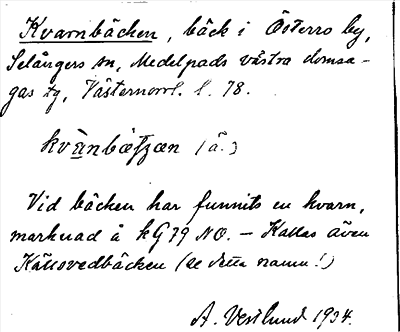 Kvarnbäcken, bäck i Österro by,
Selångers sn, Medelpads västra domsa-
gas tg, Västernorrl. l. 78.
kvànbæƫʒæn (ä.)
Vid bäcken har funnits en kvarn,
marknad å kG79 NO. – Kallas även
Källsvedbäcken (se detta namn!)
A. Vestlund 1934.